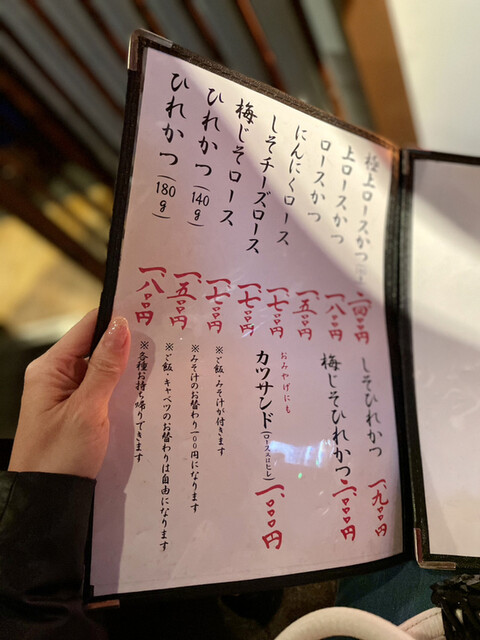 極上ロースかつ
二、四〇〇円
上ロースかつ
一、八〇〇円
ロースかつ
一、五〇〇円
にんにくロース
一、七〇〇円
しそチーズロース
一、七〇〇円
梅じそロース
一、七〇〇円
ひれかつ(140g)
一、五〇〇円
ひれかつ(180g)
一、八〇〇円
しそひれかつ
一、九〇〇円
梅じそひれかつ
二、〇〇〇円
おみやげにも
カツサンド(ロース又はヒレ)
一、〇〇〇円
※ご飯・みそ汁が付きます
※みそ汁のお替わり一〇〇円になります
※ご飯・キャベツのお替わりは自由になります
※各種お持ち帰りできます